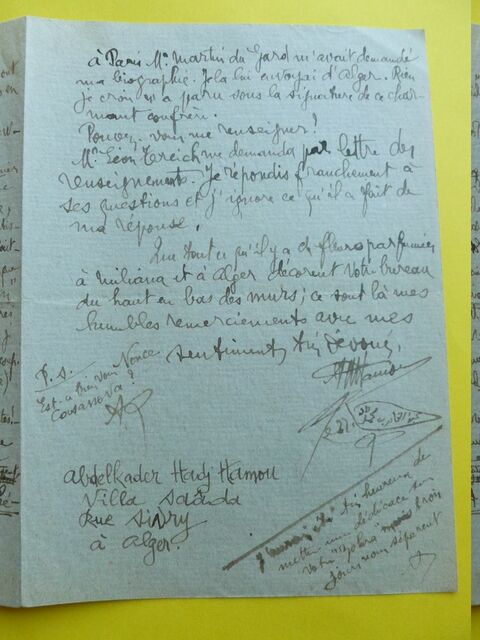 à Paris Mr. Martin du Gard m'avait demandé
ma biographie. Je la lui envoyai d'Alger. Rien
je crois n'a paru sous la signature de ce char-
mant confrère.
Pouvez-vous me renseigner?
Mr Léon Treich me demanda par lettre des
renseignements. Je répondis franchement à
ses questions et j'ignore ce qu'il a fait de
ma réponse.
Que tout ce qu'il y a de fleurs parfumées
à Miliana et à Alger décorent votre bureau
du haut en bas des murs; ce sont là mes
humbles remerciements avec mes
sentiments très dévoués.
P.S.
Est-ce bien vous Nonce
Casanova?
Abdelkader Hadj Hamou
Villa Saâda
Rue
à Alger.
très heureux de
mettre une dédicace sur
votre mais trois
jours nous séparent